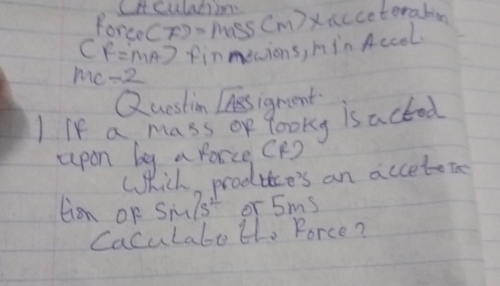 Calculation
Force (F) = mass (m) x acceleration
(F=mA) f in newions, m in Accel.
mc-2
Question/Assigment.
1 If a mass of 100kg is acted
upon by a force (F)
which produce's an accelera
tion of 5m/s² or 5ms
Caculate the Force?